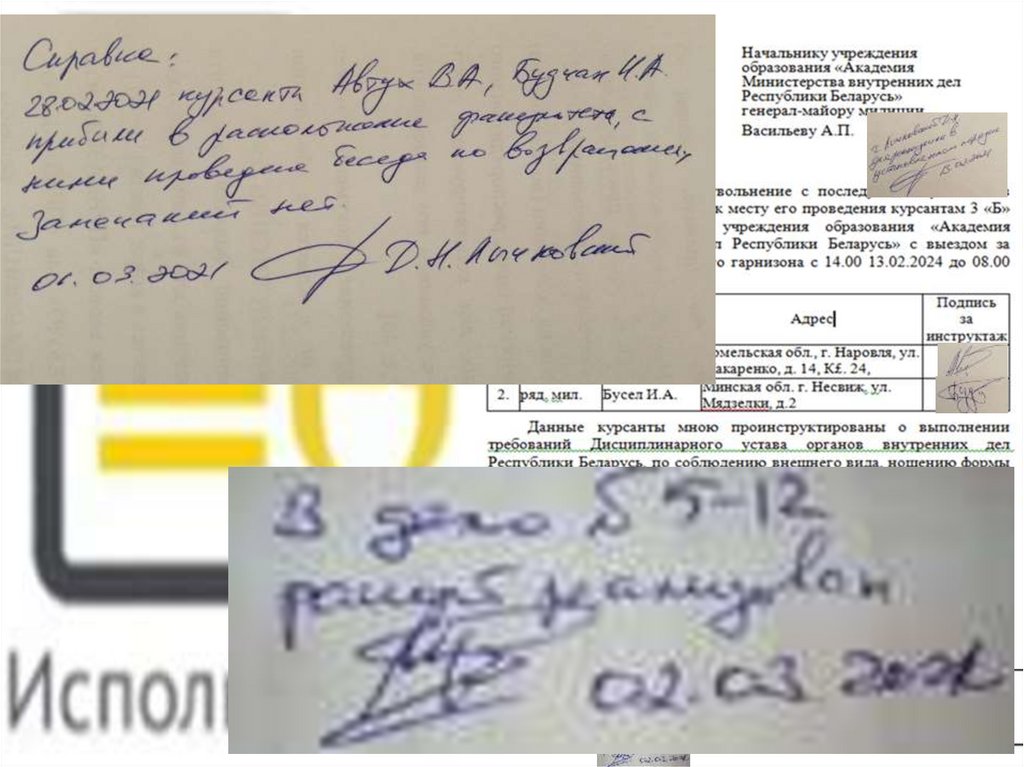 Справка:
28.02.2021 курсанты Автух В.А, Будчан И.А.
прибыли в расположение факультета, с
ними проведена беседа по возвращению,
Замечаний нет.
01.03.2021 Д.Н.Лычковский
Начальнику учреждения
образования «Академия
Министерства внутренних дел
Республики Беларусь»
генерал-майору милиции
Васильеву А.П.
вольнение с послед
к месту его проведения курсантам 3 «Б»
учреждения образования «Академия
л Республики Беларусь» с выездом за
о гарнизона с 14.00 13.02.2024 до 08.00
Адрес
Подпись
за
инструктаж
омельская обл., г. Наровля, ул.
акаренко, д. 14, К£. 24,
2. ряд. мил. Бусел И.А. Минская обл. г. Несвиж, ул.
Мядзелки, д.2
Данные курсанты мною проинструктированы о выполнении
требований Дисциплинарного устава органов внутренних дел
Республики Беларусь, по соблюдению внешнего вида, ношению формы
В дело 5 5-12
рапорт реализован
02.03.2021
Испол
02.03.2021